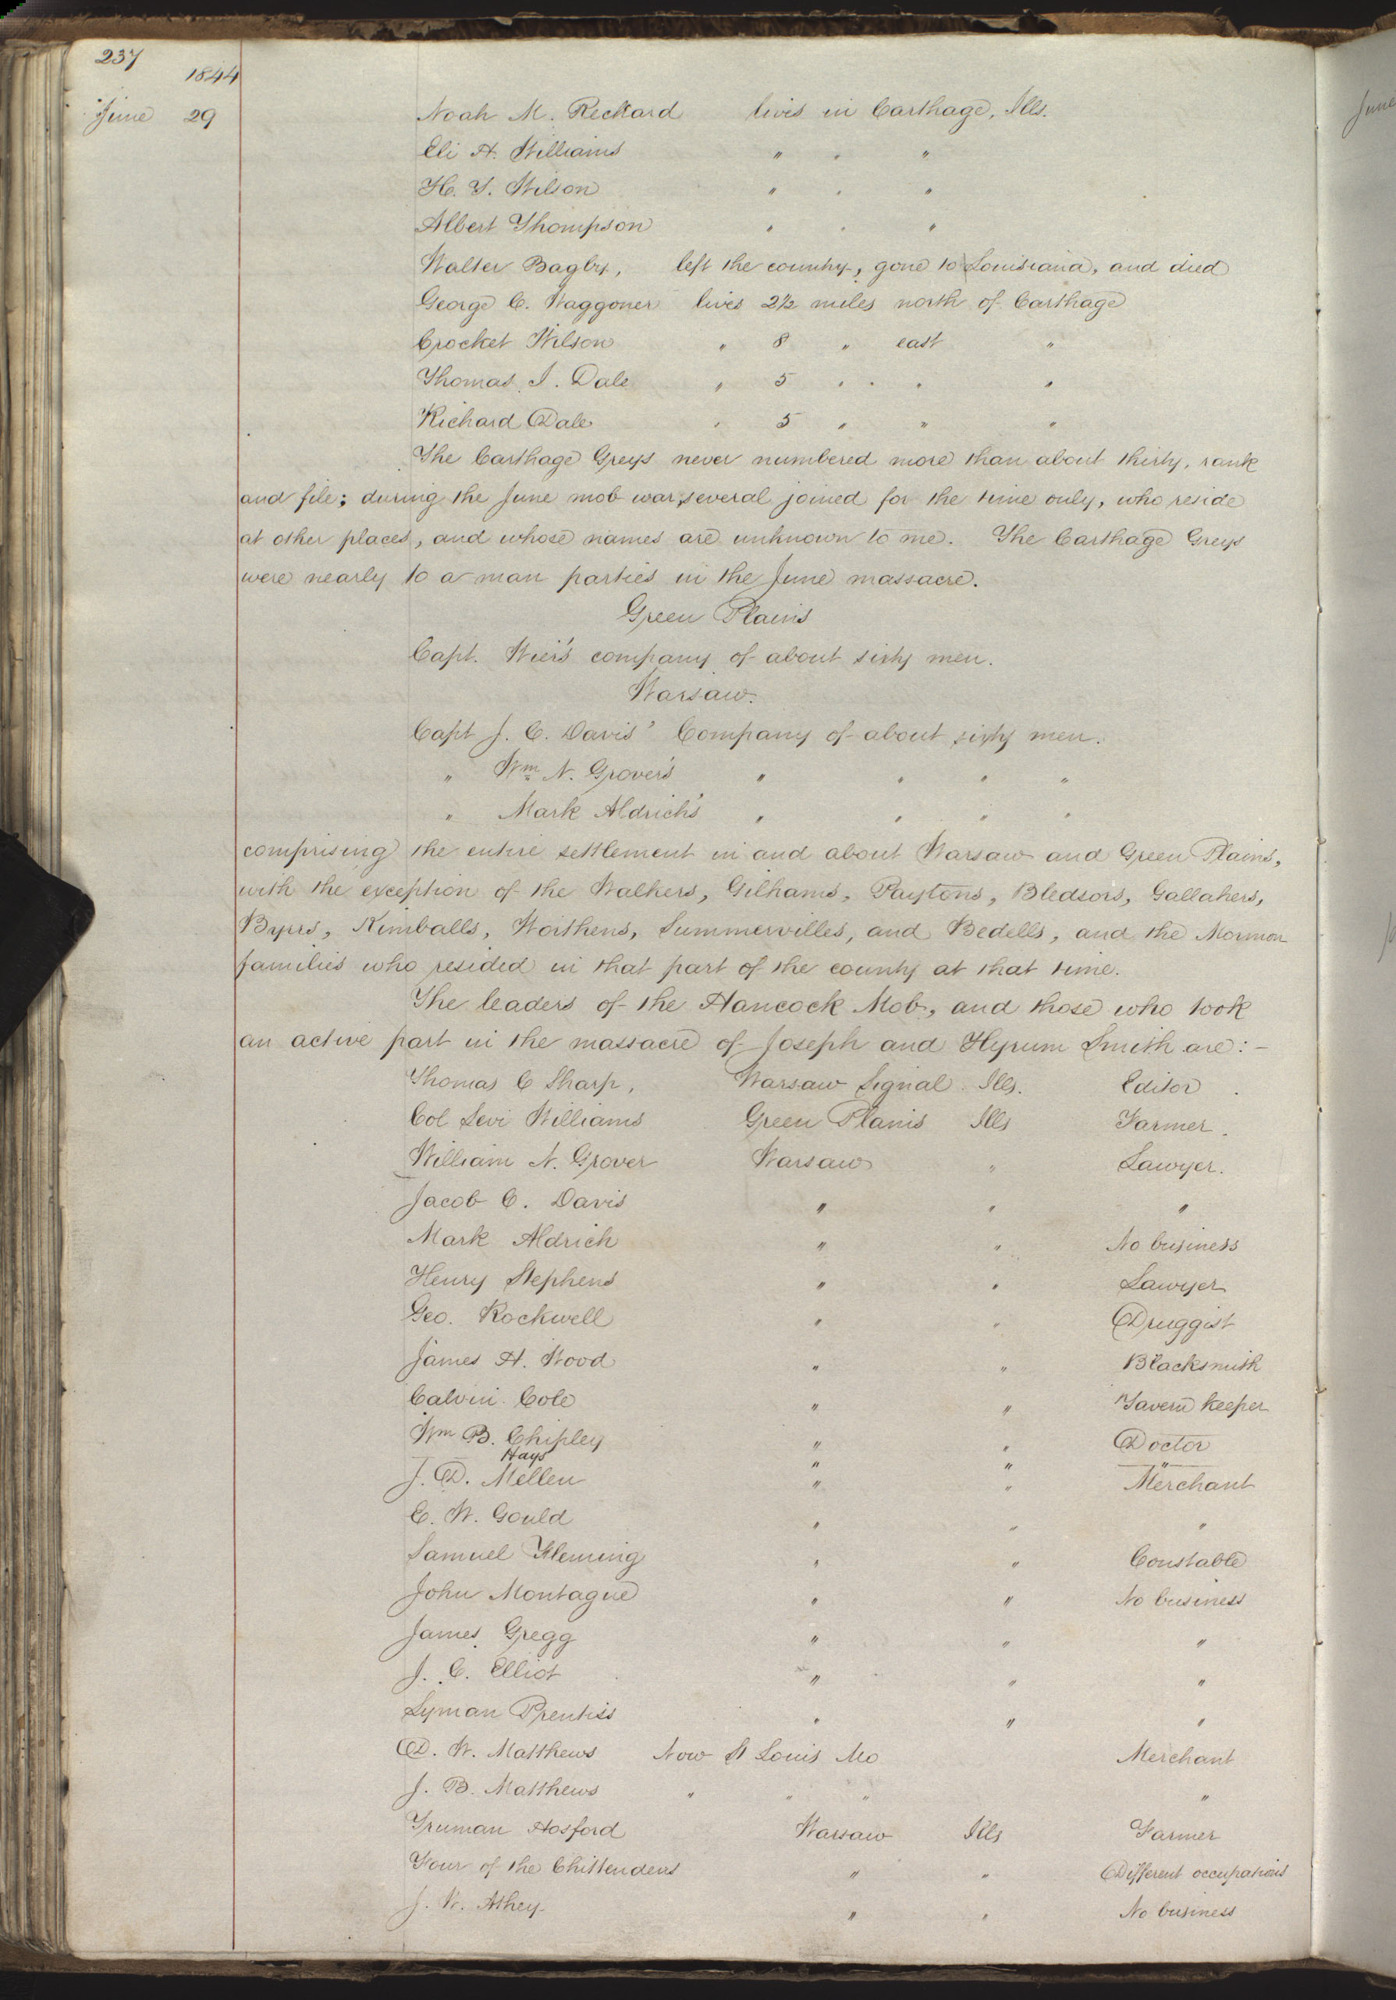 237
1844
June 29 Noah M. Reckard lives in Carthage, Ills.
Eli H. Williams " " "
H. T. Wilson " " "
Albert Thompson " " "
Walter Bagby, left the country, gone to Louisiana, and died
George C. Waggoner lives 2½ miles north of Carthage
Crocket Wilson " 8 " east "
Thomas J. Dale " 5 " " "
Richard Dale " 5 " " "
The Carthage Greys never numbered more than about thirty, rank
and file; during the June mob war, several joined for the time only, who reside
at other places, and whose names are unknown to me. The Carthage Greys
were nearly to a man parties in the June massacre.
Green Plains
Capt. Weir's company of about sixty men.
Warsaw.
Capt J. C. Davis' Company of about sixty men.
" Wm N. Grover's " " " "
" Mark Aldrich's " " " "
comprising the entire settlement in and about Warsaw and Green Plains,
with the exception of the Walkers, Gilhams, Paytons, Bledsors, Gallahers,
Byrrs, Kimballs, Worthens, Summervilles, and Bedells, and the Mormon
families who resided in that part of the county at that time.
The leaders of the Hancock Mob, and those who took
an active part in the massacre of Joseph and Hyrum Smith are:-
Thomas C Sharp, Warsaw Signal Ills. Editor.
Col Levi Williams Green Plains Ills Farmer.
William N. Grover Warsaw " Lawyer.
Jacob C. Davis " " "
Mark Aldrich " " No business
Henry Stephens " " Lawyer
Geo. Rockwell " " Druggist
James H. Wood " " Blacksmith
Calvin Cole " " Tavern keeper
Wm B. Chipley " " Doctor
Hays " " "
J. D. Mellen " " Merchant
E. W. Gould " " "
Samuel Fleming " " Constable
John Montague " " No business
James Gregg " " "
J. C. Elliot " " "
Lyman Prentiss " " "
D. W. Matthews Now St Louis Mo Merchant
J. B. Matthews " " " "
Truman Hosford Warsaw Ills Farmer
Four of the Chittendens " " Different occupations
J. W. Athey " " No business
June